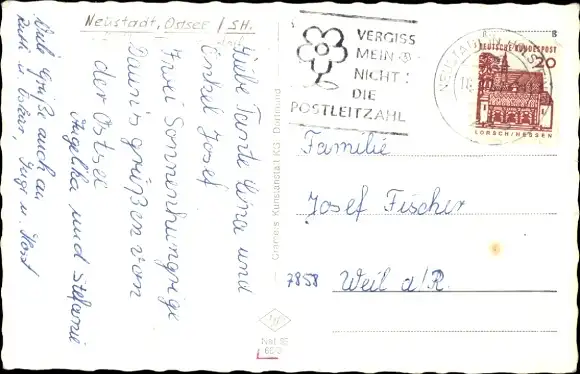 Neustadt, Ostsee / SH.
Liebe Tante Lina und
Onkel Josef
Zwei Sonnenhungrige
grüßen von
der Ostsee
Angelika und Stefanie
Viele Grüße auch an
Ruth u. Oskar, Ingr. u. Horst
Cramers Kunstanstalt KG. Dortmund
VERGISS
MEIN
NICHT:
DIE
POSTLEITZAHL
NEUSTADT IN HOLST
18
DEUTSCHE BUNDESPOST
20
LORSCH/HESSEN
Familie
Josef Fischer
7858 Weil a/R.